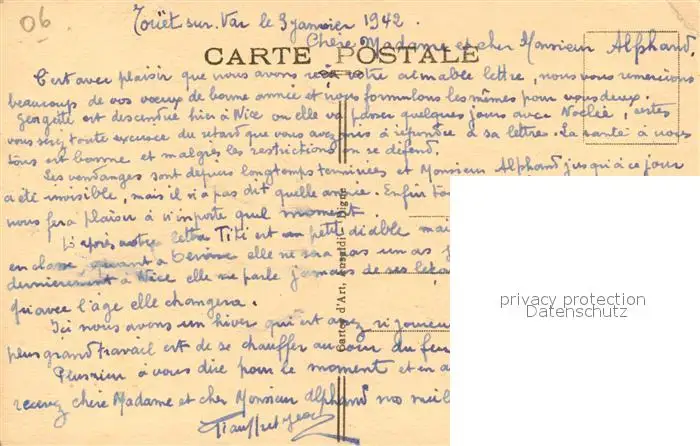 06
Touët sur Var le 3 janvier 1942.
Chère Madame et cher Monsieur Alphand,
CARTE POSTALE
C'est avec plaisir que nous avons reçu votre aimable lettre, nous vous remercions
beaucoup de vos vœux de bonne année et nous formulons les mêmes pour vous deux.
Georgette est descendue hier à Nice ou elle va passer quelques jours avec Noëlie, certes
vous serez toute excusée du retard que vous avez mis à répondre à sa lettre. La santé à nous
tous est bonne et malgrés les restrictions on se défend.
Les vendanges sont depuis longtemps terminées et Monsieur Alphand jusqu'à ce jour
a été invisible, mais il n'a pas dit quelle année. Enfin
nous fera plaisir à n'importe quel moment.
D'après votre lettre Titi est un petit diable
en classe quant à elle ne sera pas un as
dernièrement à Nice elle ne parle jamais de ses
qu'avec l'âge elle changera.
Ici nous avons un hiver qui est assez rigoureux
plus grand travail est de se chauffer au tour du feu
Plus rien à vous dire pour le moment et en
recevez chère Madame et cher Monsieur Alphand nos
Cartes d'Art, Digne
privacy protection
Datenschutz